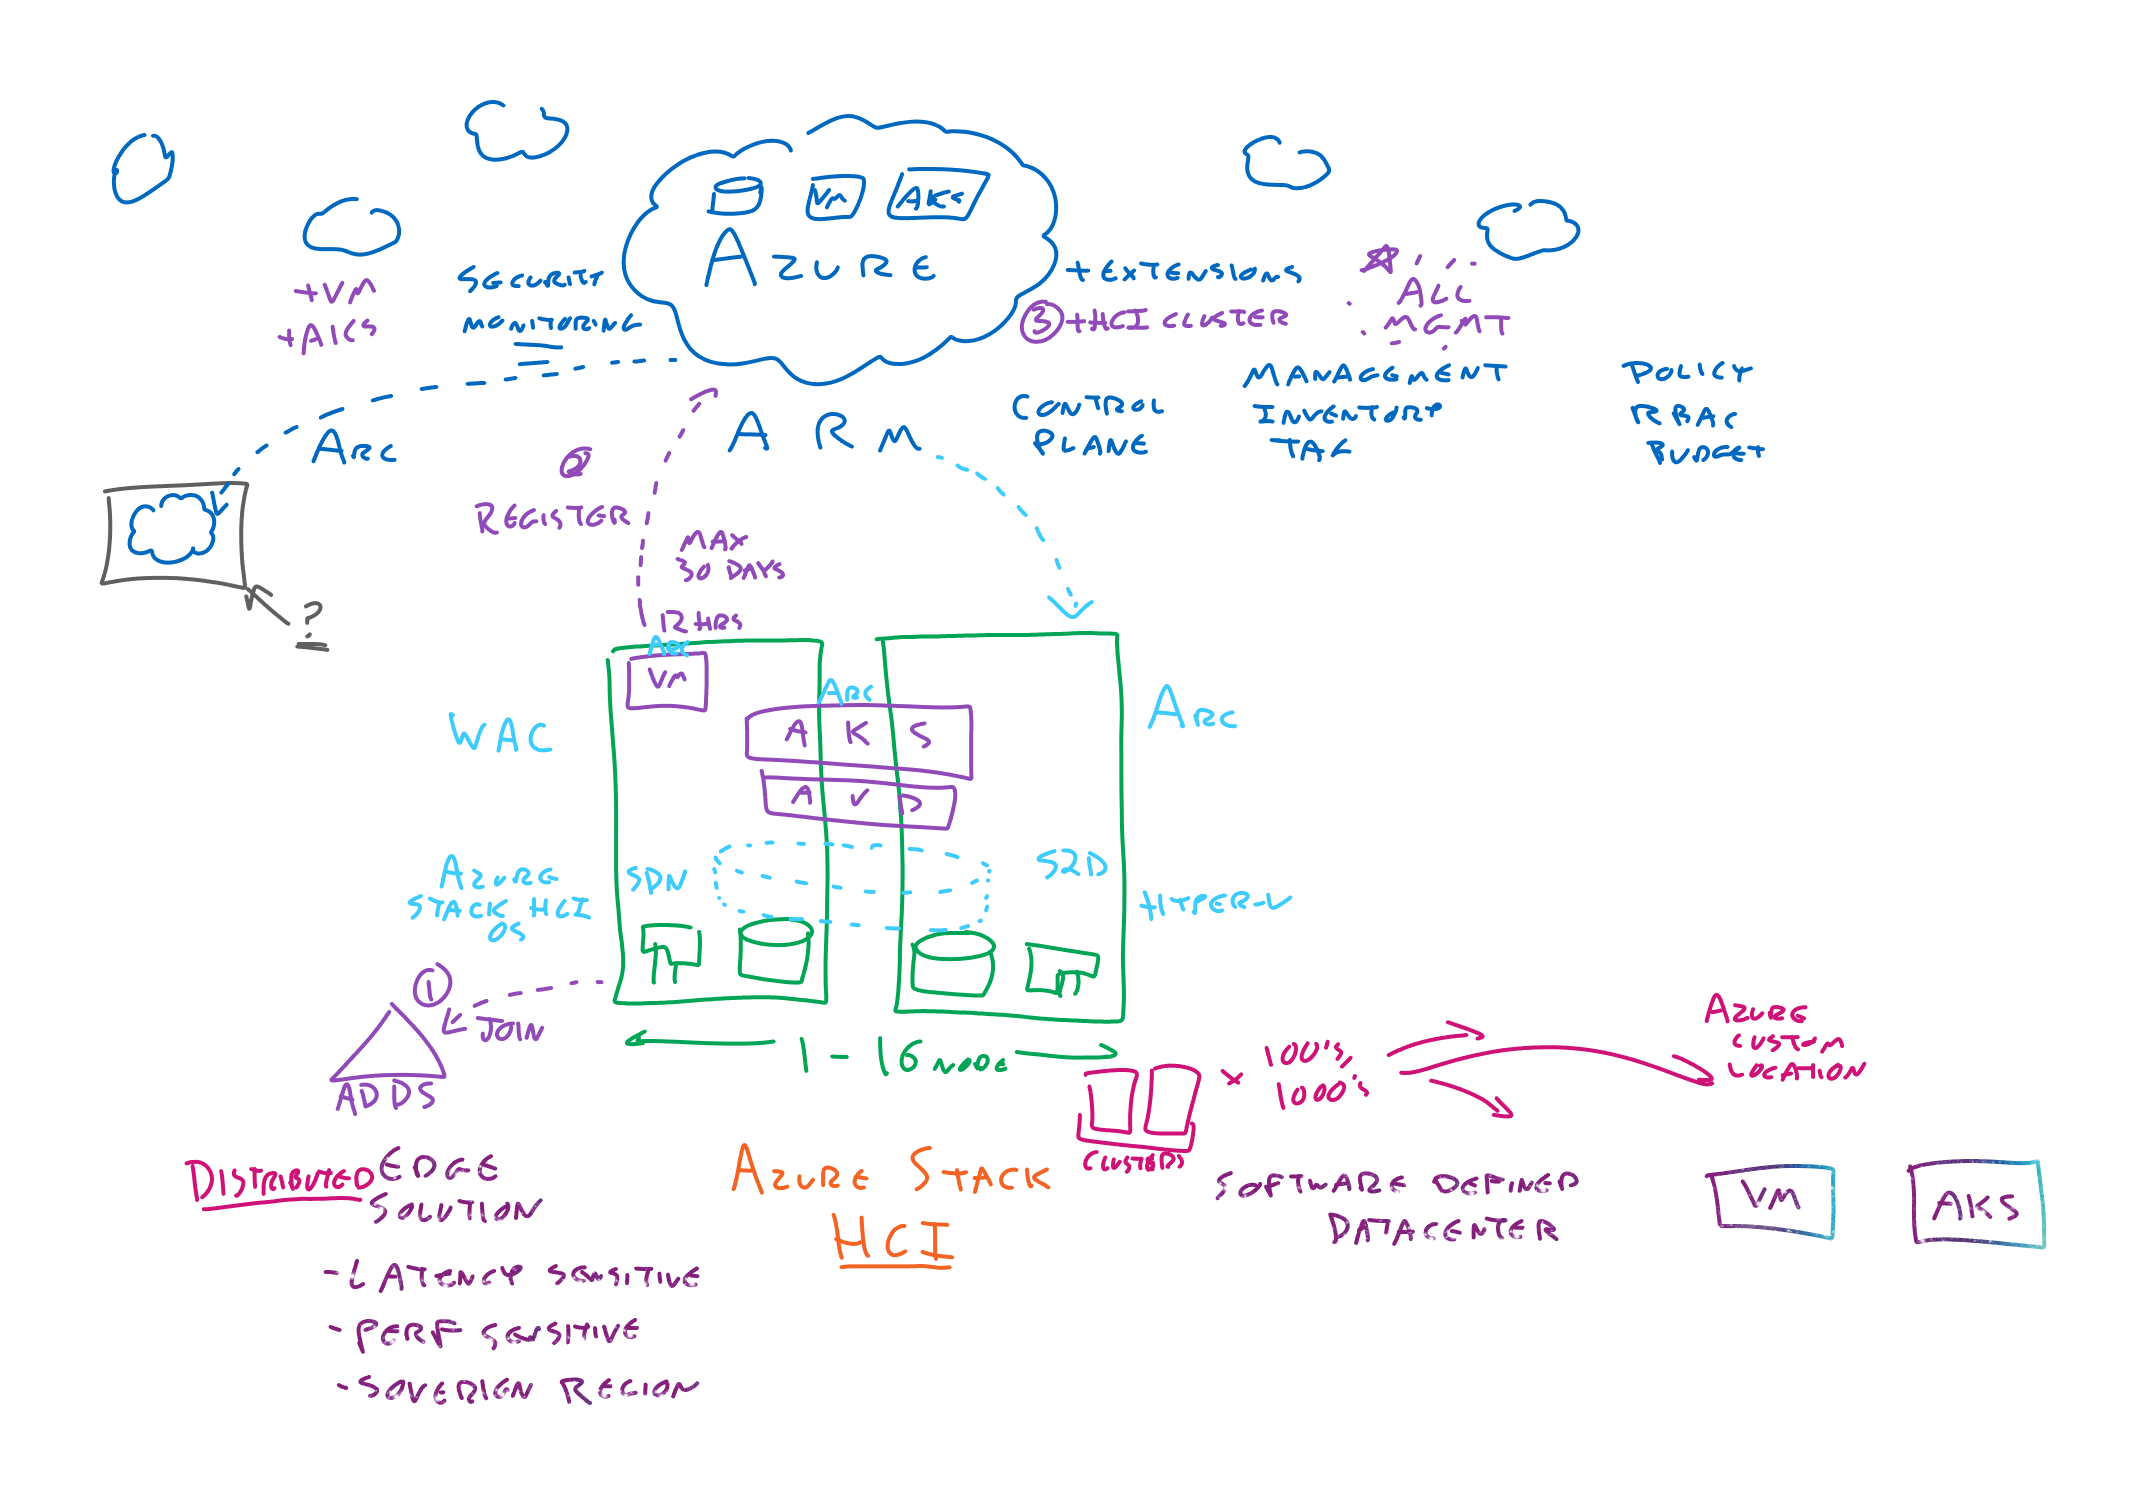 VM
AKS
AZURE
+VM
+AKS
SECURITY
MONITORING
+EXTENSIONS
3 +HCI CLUSTER
ALL
MGMT
ARC
ARM
CONTROL
PLANE
MANAGEMENT
INVENTORY
TAG
POLICY
RBAC
BUDGET
2
REGISTER
MAX
30 DAYS
12 HRS
?
ARC
VM
ARC
AKS
AVD
WAC
ARC
AZURE
STACK HCI
OS
SDN
S2D
HYPER-V
1
JOIN
ADDS
1-16 NODE
CLUSTERS
x 100'S,
1000'S
AZURE
CUSTOM
LOCATION
DISTRIBUTED EDGE
SOLUTION
-LATENCY SENSITIVE
-PERF SENSITIVE
-SOVERIGN REGION
AZURE STACK
HCI
SOFTWARE DEFINED
DATACENTER
VM
AKS